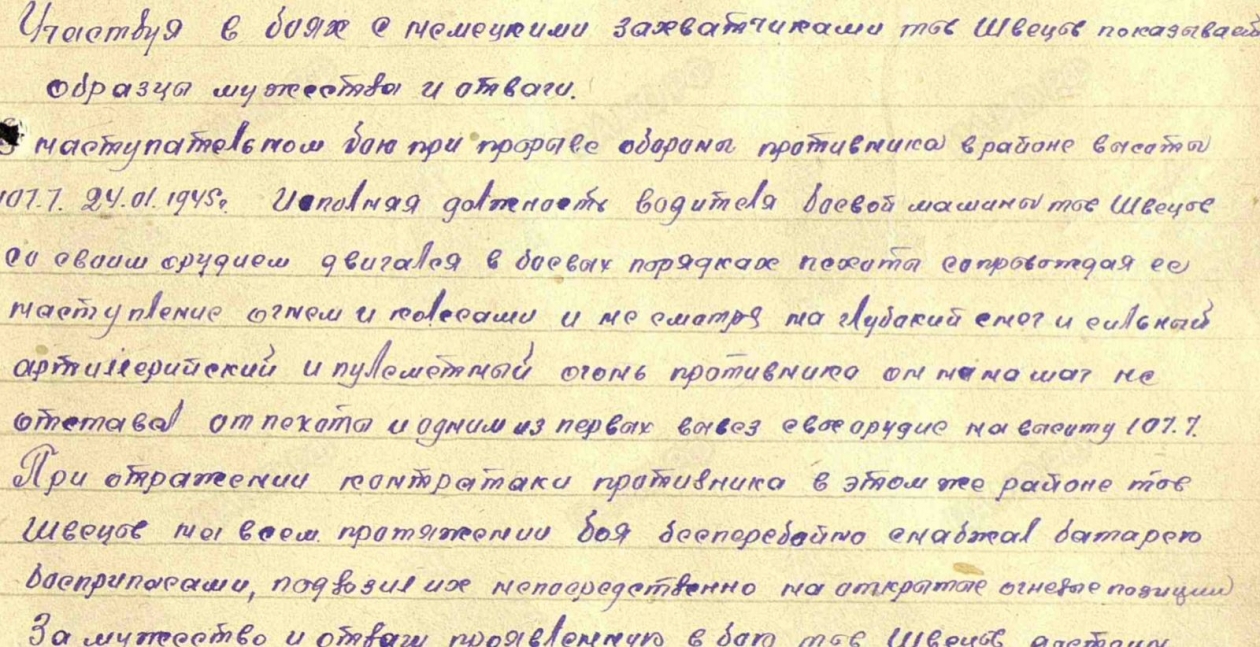 Участвуя в боях с немецкими захватчиками тов Швецов показывает
образцы мужества и отваги.
В наступательном бою при прорыве обороны противника в районе высоты
107.7. 24.01.1945г. Исполняя должность водителя боевой машины тов Швецов
со своим орудием двигался в боевых порядках пехоты сопровождая ее
наступление огнем и колесами и не смотря на глубокий снег и сильный
артиллерийский и пулеметный огонь противника он ни на шаг не
отставал от пехоты и одним из первых вывез свое орудие на высоту 107.7.
При отражении контратаки противника в этом же районе тов
Швецов на всем протяжении боя бесперебойно снабжал батарею
боеприпасами, подвозил их непосредственно на открытые огневые позиции
За мужество и отвагу проявленную в бою тов Швецов достоин